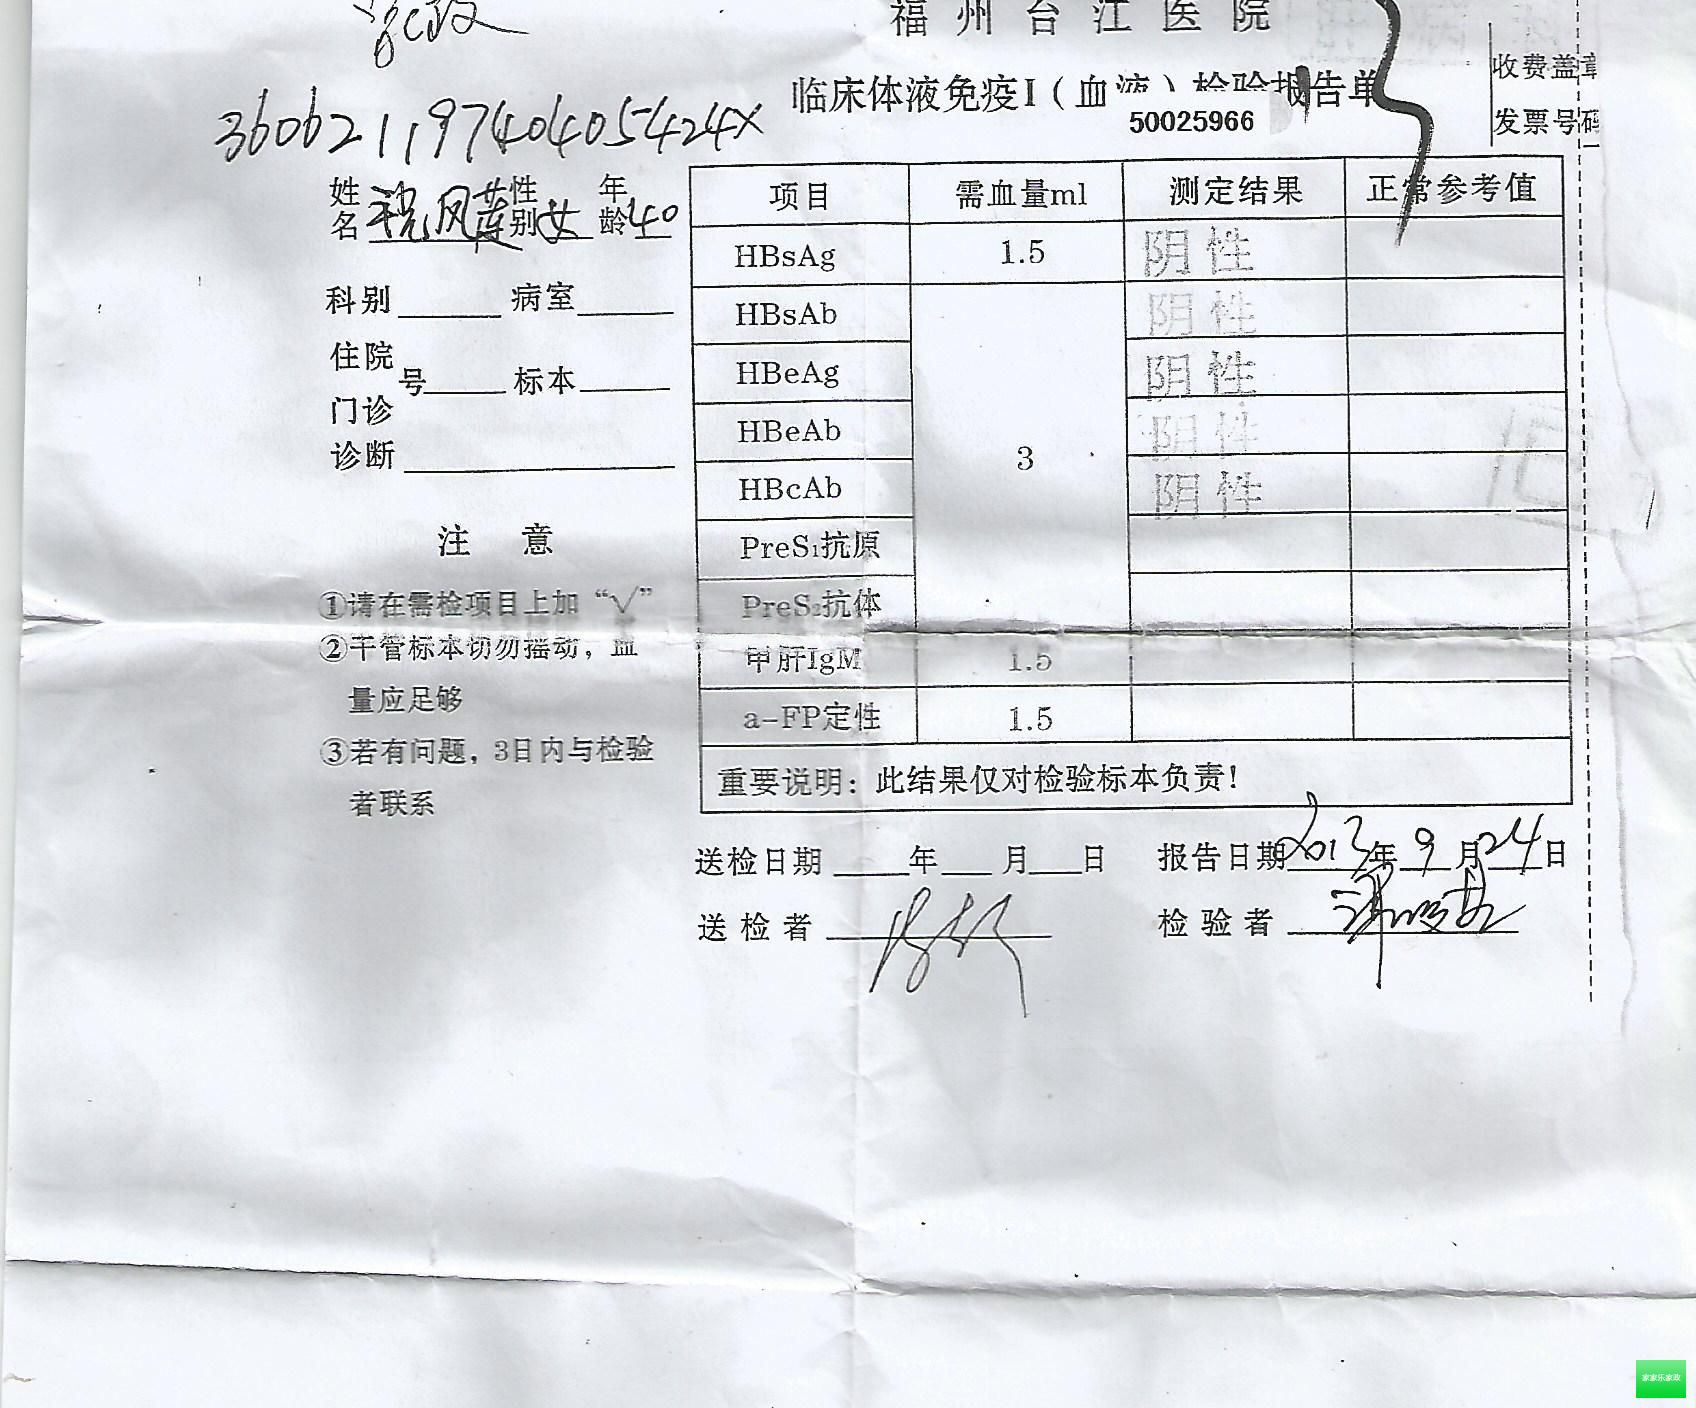 家政
福州台江医院
临床体液免疫I(血液)检验报告单
50025966
收费盖章
发票号码
3606211974040 5424X
姓名 程凤莲 性别 女 年龄 40
科别 病室
住院号 标本
门诊
诊断
注 意
①请在需检项目上加“√”
②干管标本切勿摇动，血
量应足够
③若有问题，3日内与检验
者联系
项目 需血量ml 测定结果 正常参考值
HBsAg 1.5 阴性
HBsAb 阴性
HBeAg 阴性
HBeAb 3 阴性
HBcAb 阴性
PreS₁抗原
PreS₂抗体
甲肝IgM 1.5
a-FP定性 1.5
重要说明：此结果仅对检验标本负责！
送检日期 年 月 日 报告日期 2013年9月24日
送检者 检验者
家家乐家政